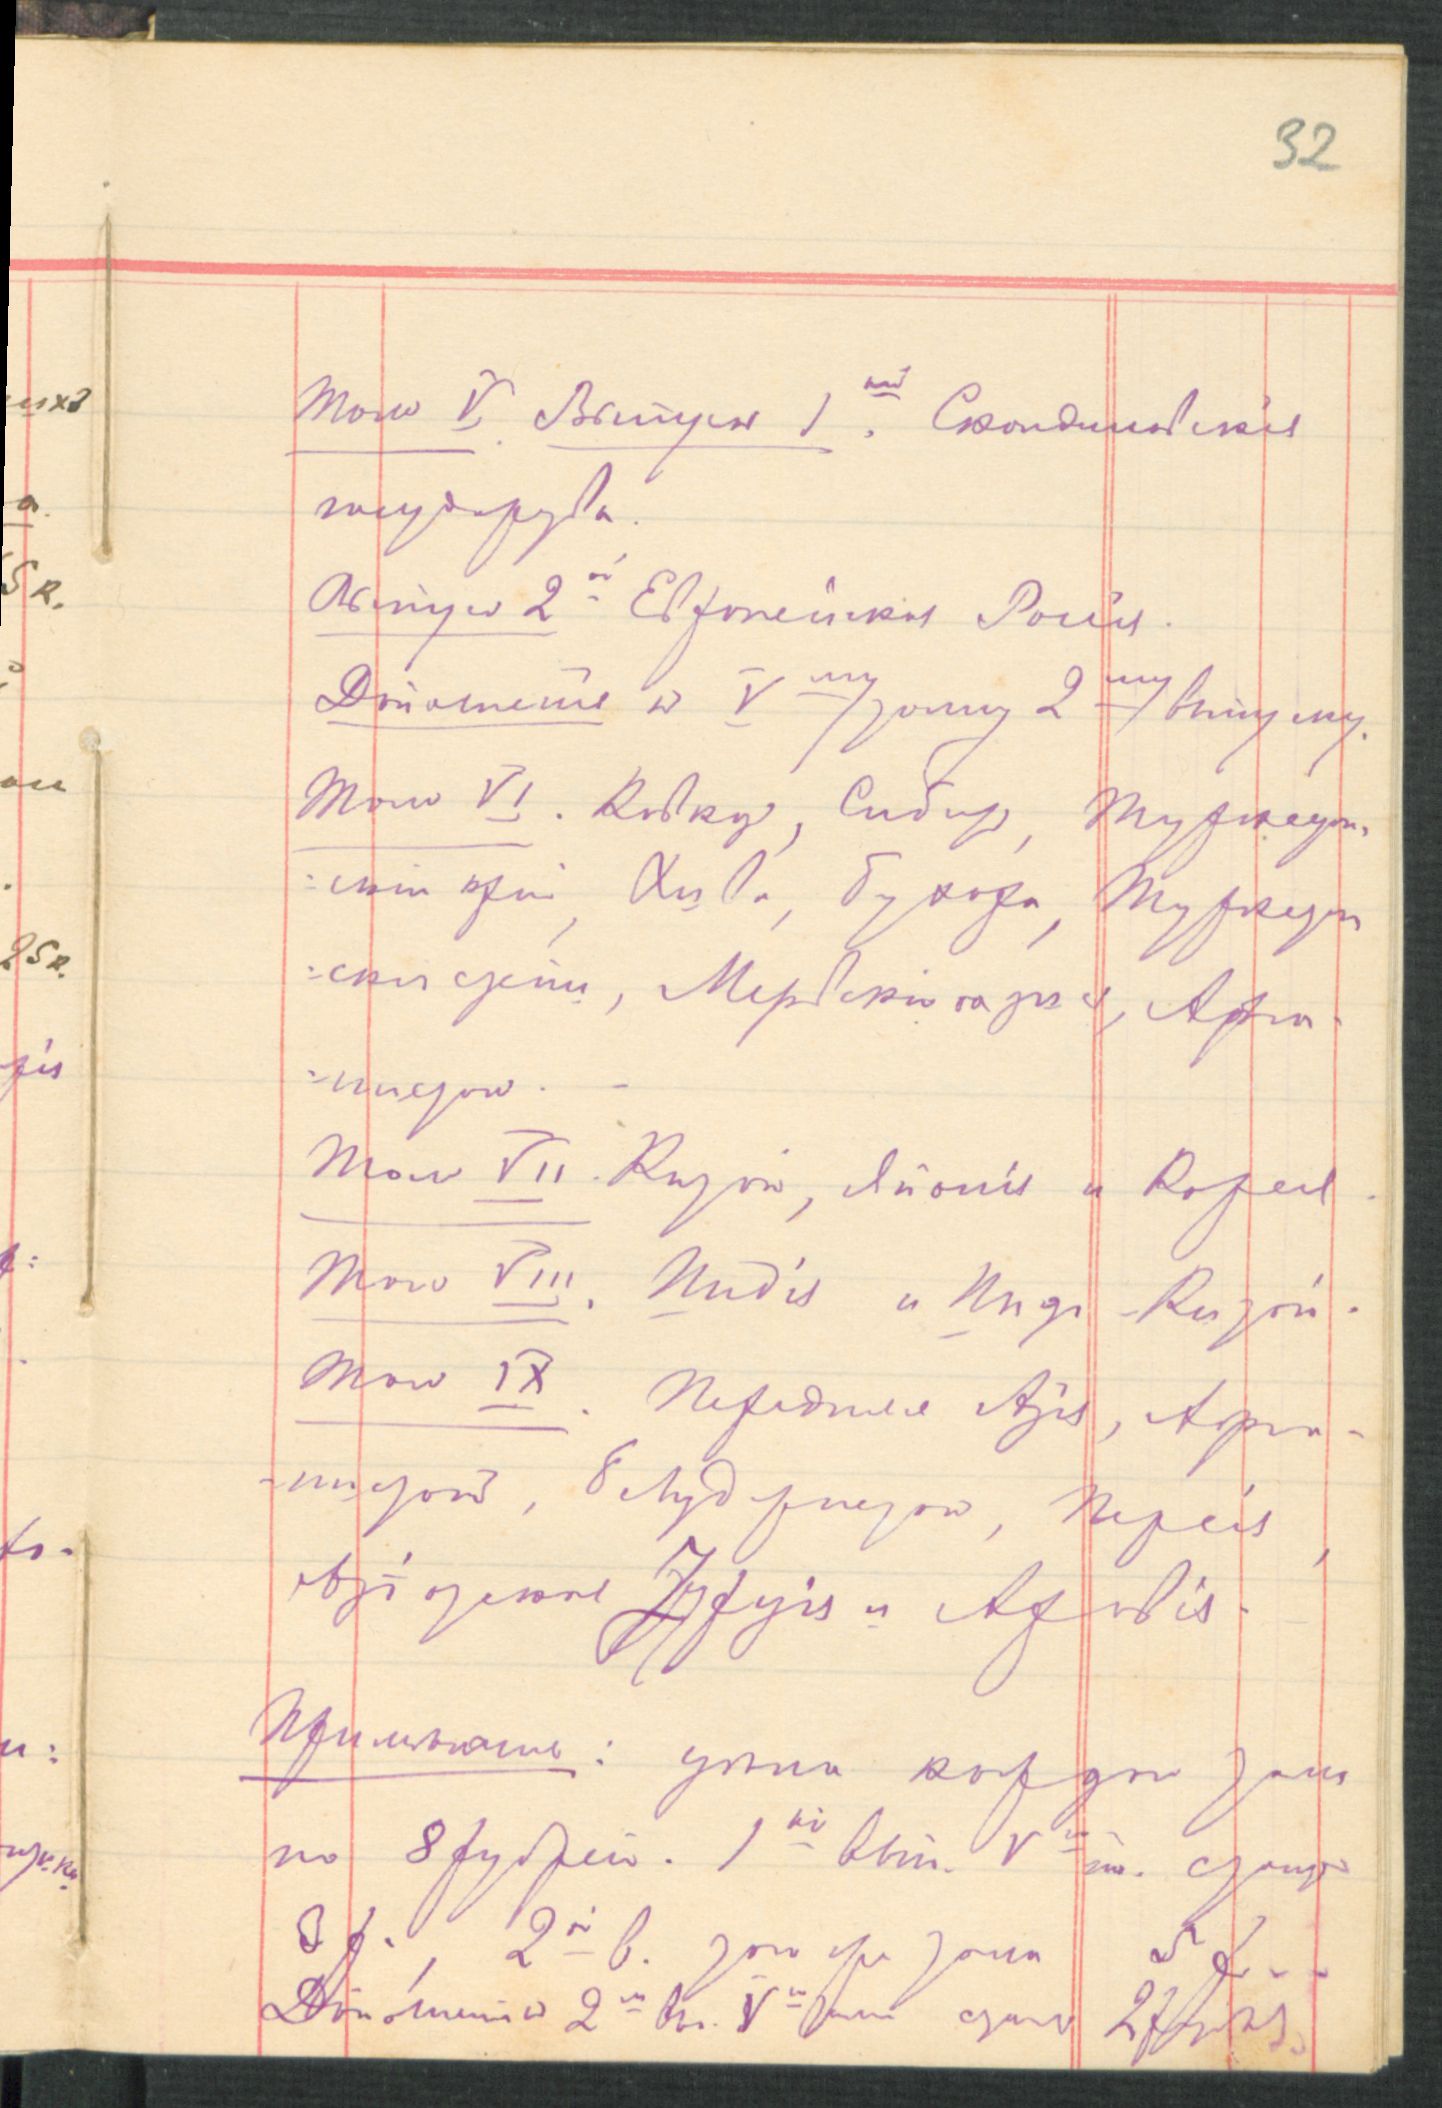 32
Томъ V. Выпускъ 1ый. Скандинавскія
государства.
Выпускъ 2ой Европейская Россія.
Дополненіе к V му/тому 2 му/выпуску.
Томъ VI. Кавказъ, Сибирь, Туркестан-
:скій край, Хива, Бухара, Туркестан
:скія степи, Мервскій оазисъ, Афга-
:нистан. -
Томъ VII. Китай, Японія и Корея.
Томъ VIII. Индія и Индо-Китай.
Томъ IX. Передняя Азія, Афга-
-нистанъ, Белуджистан, Персія,
Азіатская Турція и Аравія.
Примѣчаніе: цѣна каждого тома
по 8 рублей. 1ый вып. V го т. стоитъ
3 р., 2ой в. того же тома 5 р.
Дополненіе 2го вы. V го тома стоитъ 2 рубля.
ихъ
а.
5 к.
25 к.
рія